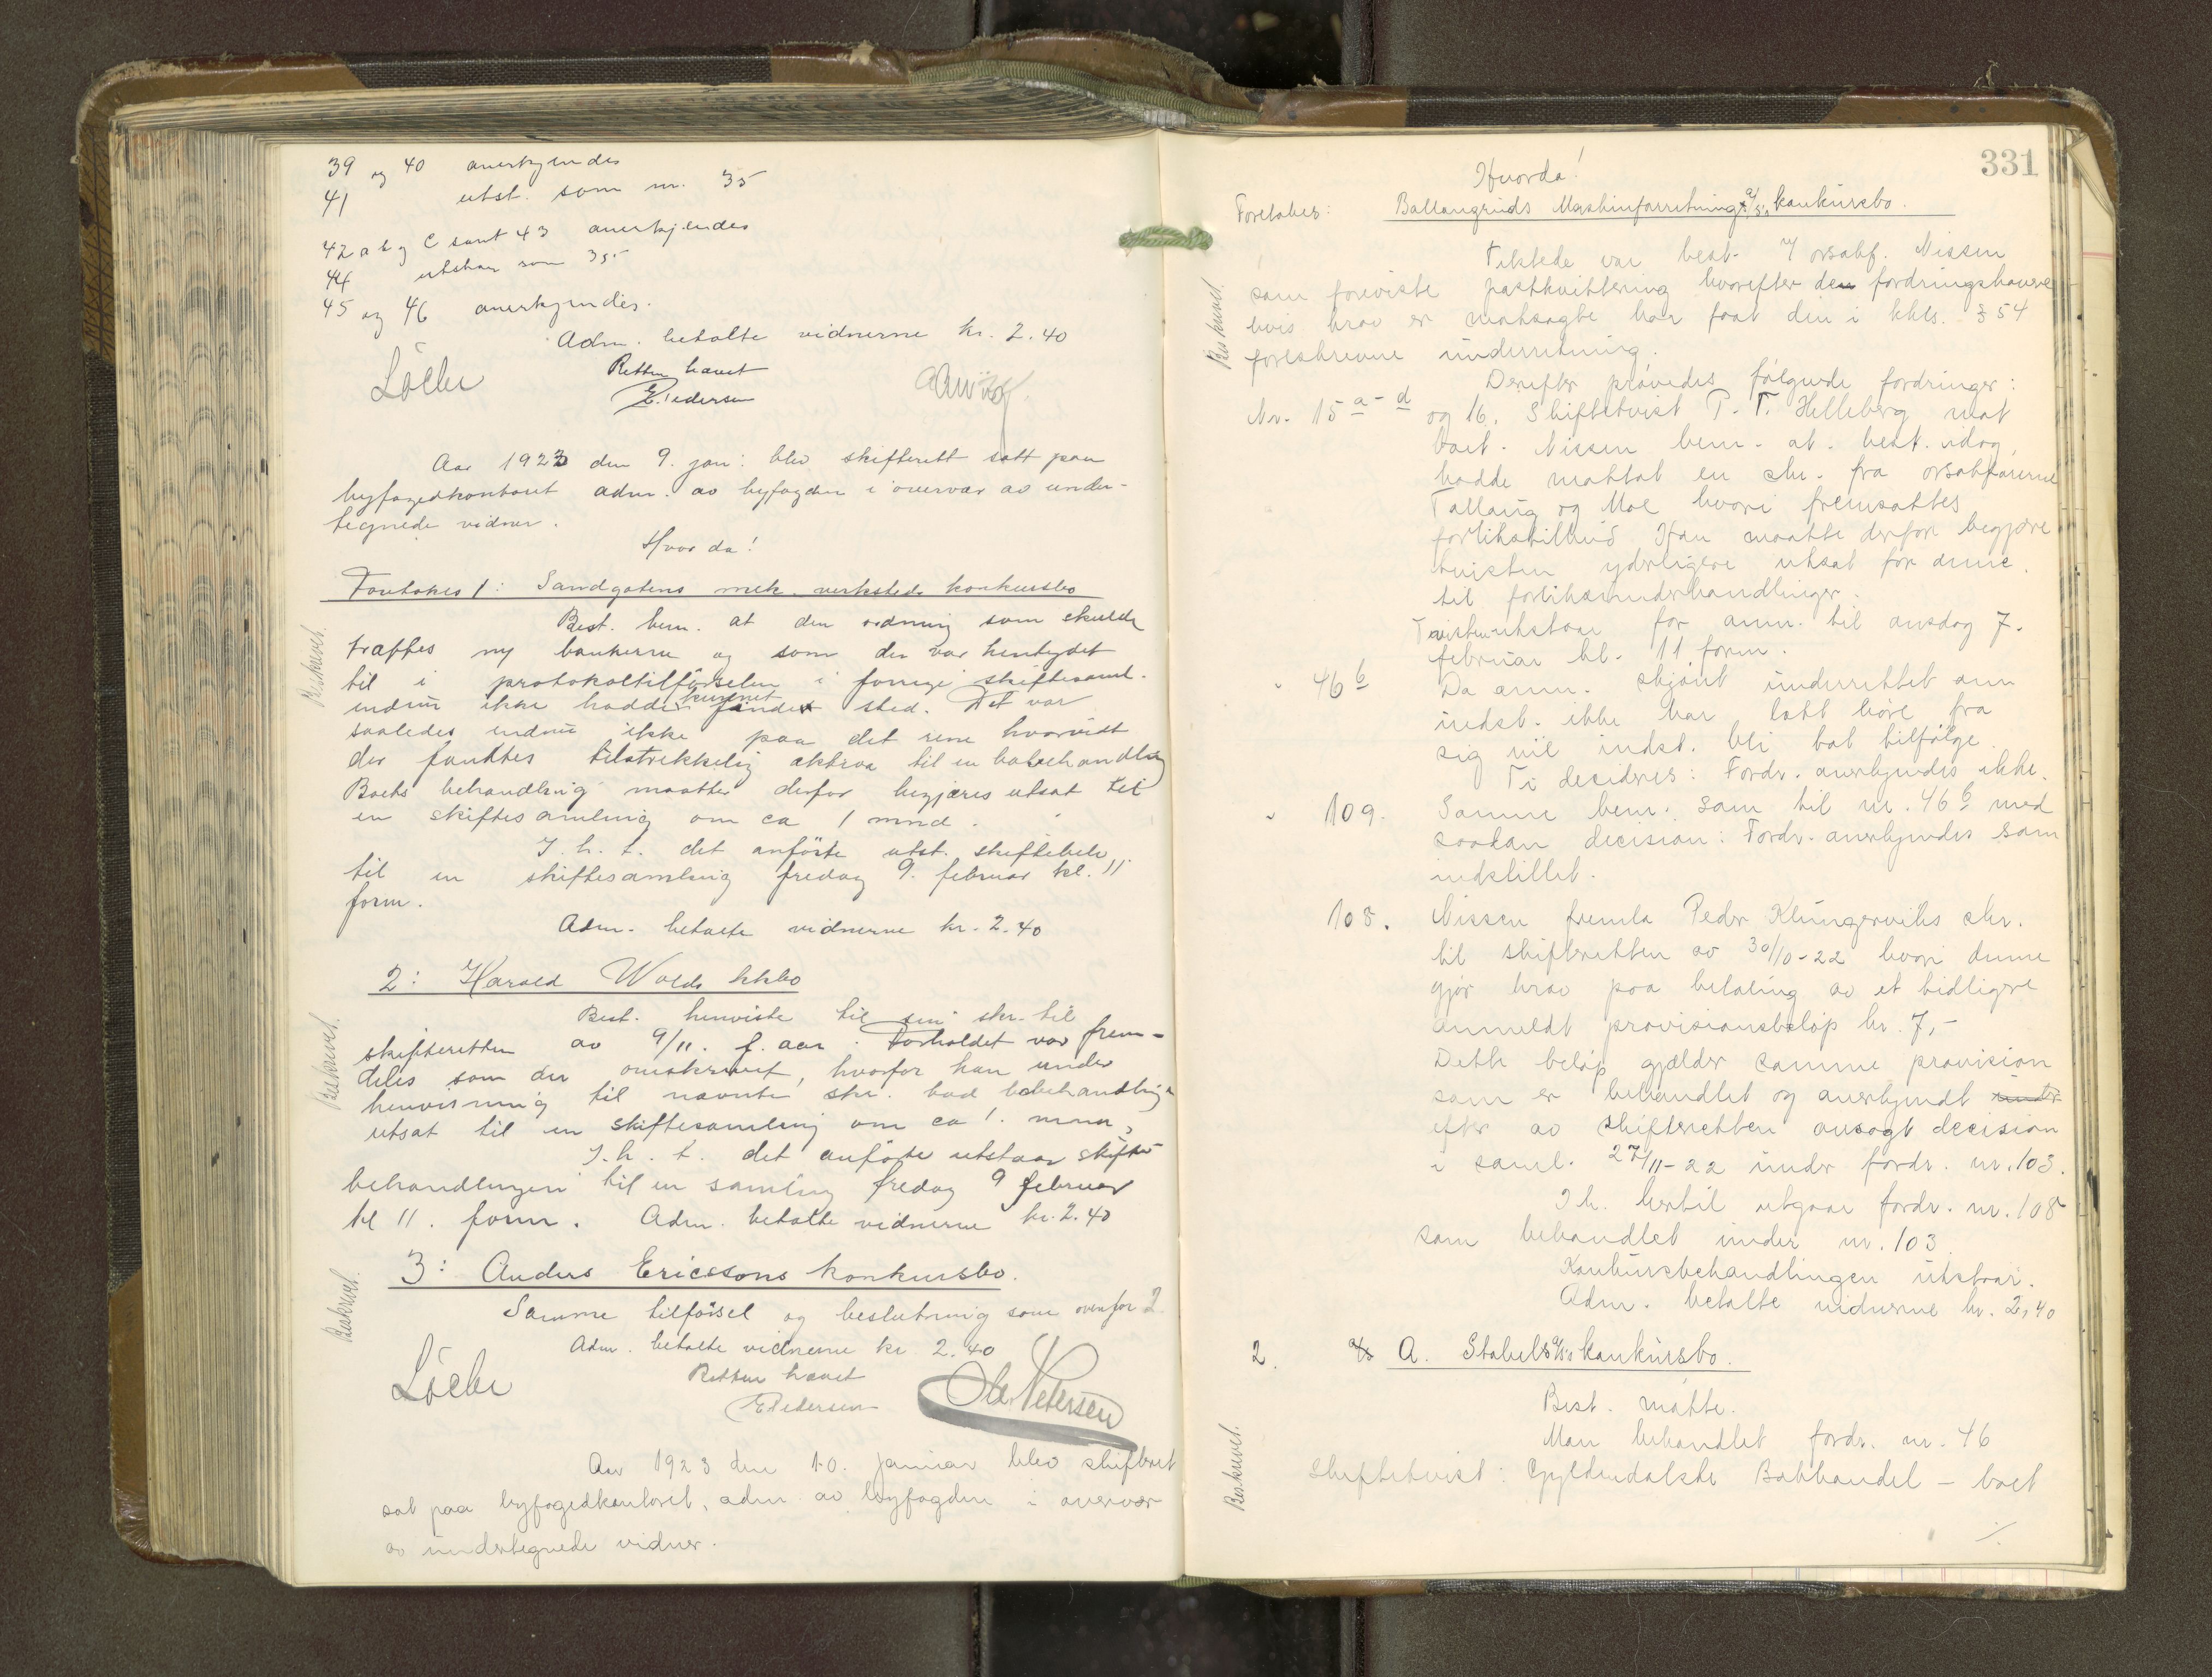 39 og 40 anerkjendes
41 utst. som nr. 35
42 a b og c samt 43 anerkjendes
44 utstaar som 35
45 og 46 anerkjendes.
Adm. betalte vidnerne kr. 2.40
Retten hævet
E. Pedersen
Aar 1923 den 9. jan: blev skifterett satt paa
byfogedkontoret adm. av byfogden i overvær av under-
tegnede vidner.
Hvorda!
Foretokes 1: Sandgatens mek. verksteds konkursbo
Beskrevet.
Best. bem. at den ordning som skulde
træffes ny bankerne og som der var hentydet
til i protokoltilførselen i forrige skiftesaml.
endnu ikke hadde kunnet finde sted. Det var
saaledes endnu ikke paa det rene hvorvidt
der fandtes tilstrekkelig aktiva til en bobehandling
Boets behandling maatte derfor begjæres utsat til
en skiftesamling om ca 1 mnd.
I. h. t. det anførte utst. skiftebeh.
til en skiftesamling fredag 9. februar kl. 11
form.
Adm. betalte vidnerne kr. 2.40
2: Harald Wolds kkbo
Beskrevet.
Best. henviste til sin skr. til
skifteretten av 9/11. f. aar. Forholdet var frem-
deles som der omskrevet, hvorfor han under
henvisning til nævnte skr. bad bobehandlingen
utsat til en skiftesamling om ca 1. mnd,
I. h. t. det anførte utstaar skifte-
behandlingen til en samling fredag 9 februar
kl 11. form. Adm. betalte vidnerne kr. 2.40
3: Anders Ericssons konkursbo.
Beskrevet.
Samme tilførsel og beslutning som ovenfor 2
Adm. betalte vidnerne kr 2.40
Retten hævet
E Pedersen
Ole Petersen
Aar 1923 den 10. januar blev skifteret
sat paa byfogedkontoret, adm. av byfogden i overvær
av undertegnede vidner.
331
Hvorda!
Foretokes: Ballangruds Maskinforretning a/s's konkursbo.
Beskrevet.
Tilstede var best. v/ orsakf. Nissen
som foreviste postkvittering hvorefter den fordringshavere
hvis krav er motsagt har faat den i kkls. § 54
foreskrevne underretning.
Derefter prøvedes følgende fordringer:
Nr. 15 a - d og 16. Skiftetvist P. T. Helleberg mot
boet. Nissen bem. at best. idag
hadde mottat en skr. fra orsakførerne
Tallaug og Moe hvori fremsattes
forlikstilbud. Han maatte derfor begjære
tvisten yderligere utsat for denne.
til forliksunderhandlinger.
Tvisten utstaar for anm. til onsdag 7.
februar kl. 11 form.
" 46 b Da anm. skjønt underrettet om
indst. ikke har latt høre fra
sig vil indst. bli tat tilfølge.
Ti decideres: Fordr. anerkjendes ikke.
" 109. Samme bem. som til nr. 46 b med
saadan decision: Fordr. anerkjendes som
indstillet.
108. Nissen fremla Peder Klungerviks skr.
til skifteretten av 30/10-22 hvori denne
gjør krav paa betaling av et tidligere
anmeldt provisionsbeløp kr. 7,-
Dette beløp gjælder samme provision
som er behandlet og anerkjendt under
efter av skifteretten avsagt decision
i saml. 27/11-22 under fordr. nr. 103.
I h. hertil utgaar fordr. nr. 108
som behandlet under nr. 103.
Konkursbehandlingen utstaar.
Adm. betalte vidnerne kr. 2,40
2. a/s A. Stabels a/s's konkursbo.
Beskrevet.
Best. møtte.
Man behandlet fordr. nr. 46
Skiftetvist: Gyldendalske Bokhandel - boet
./.